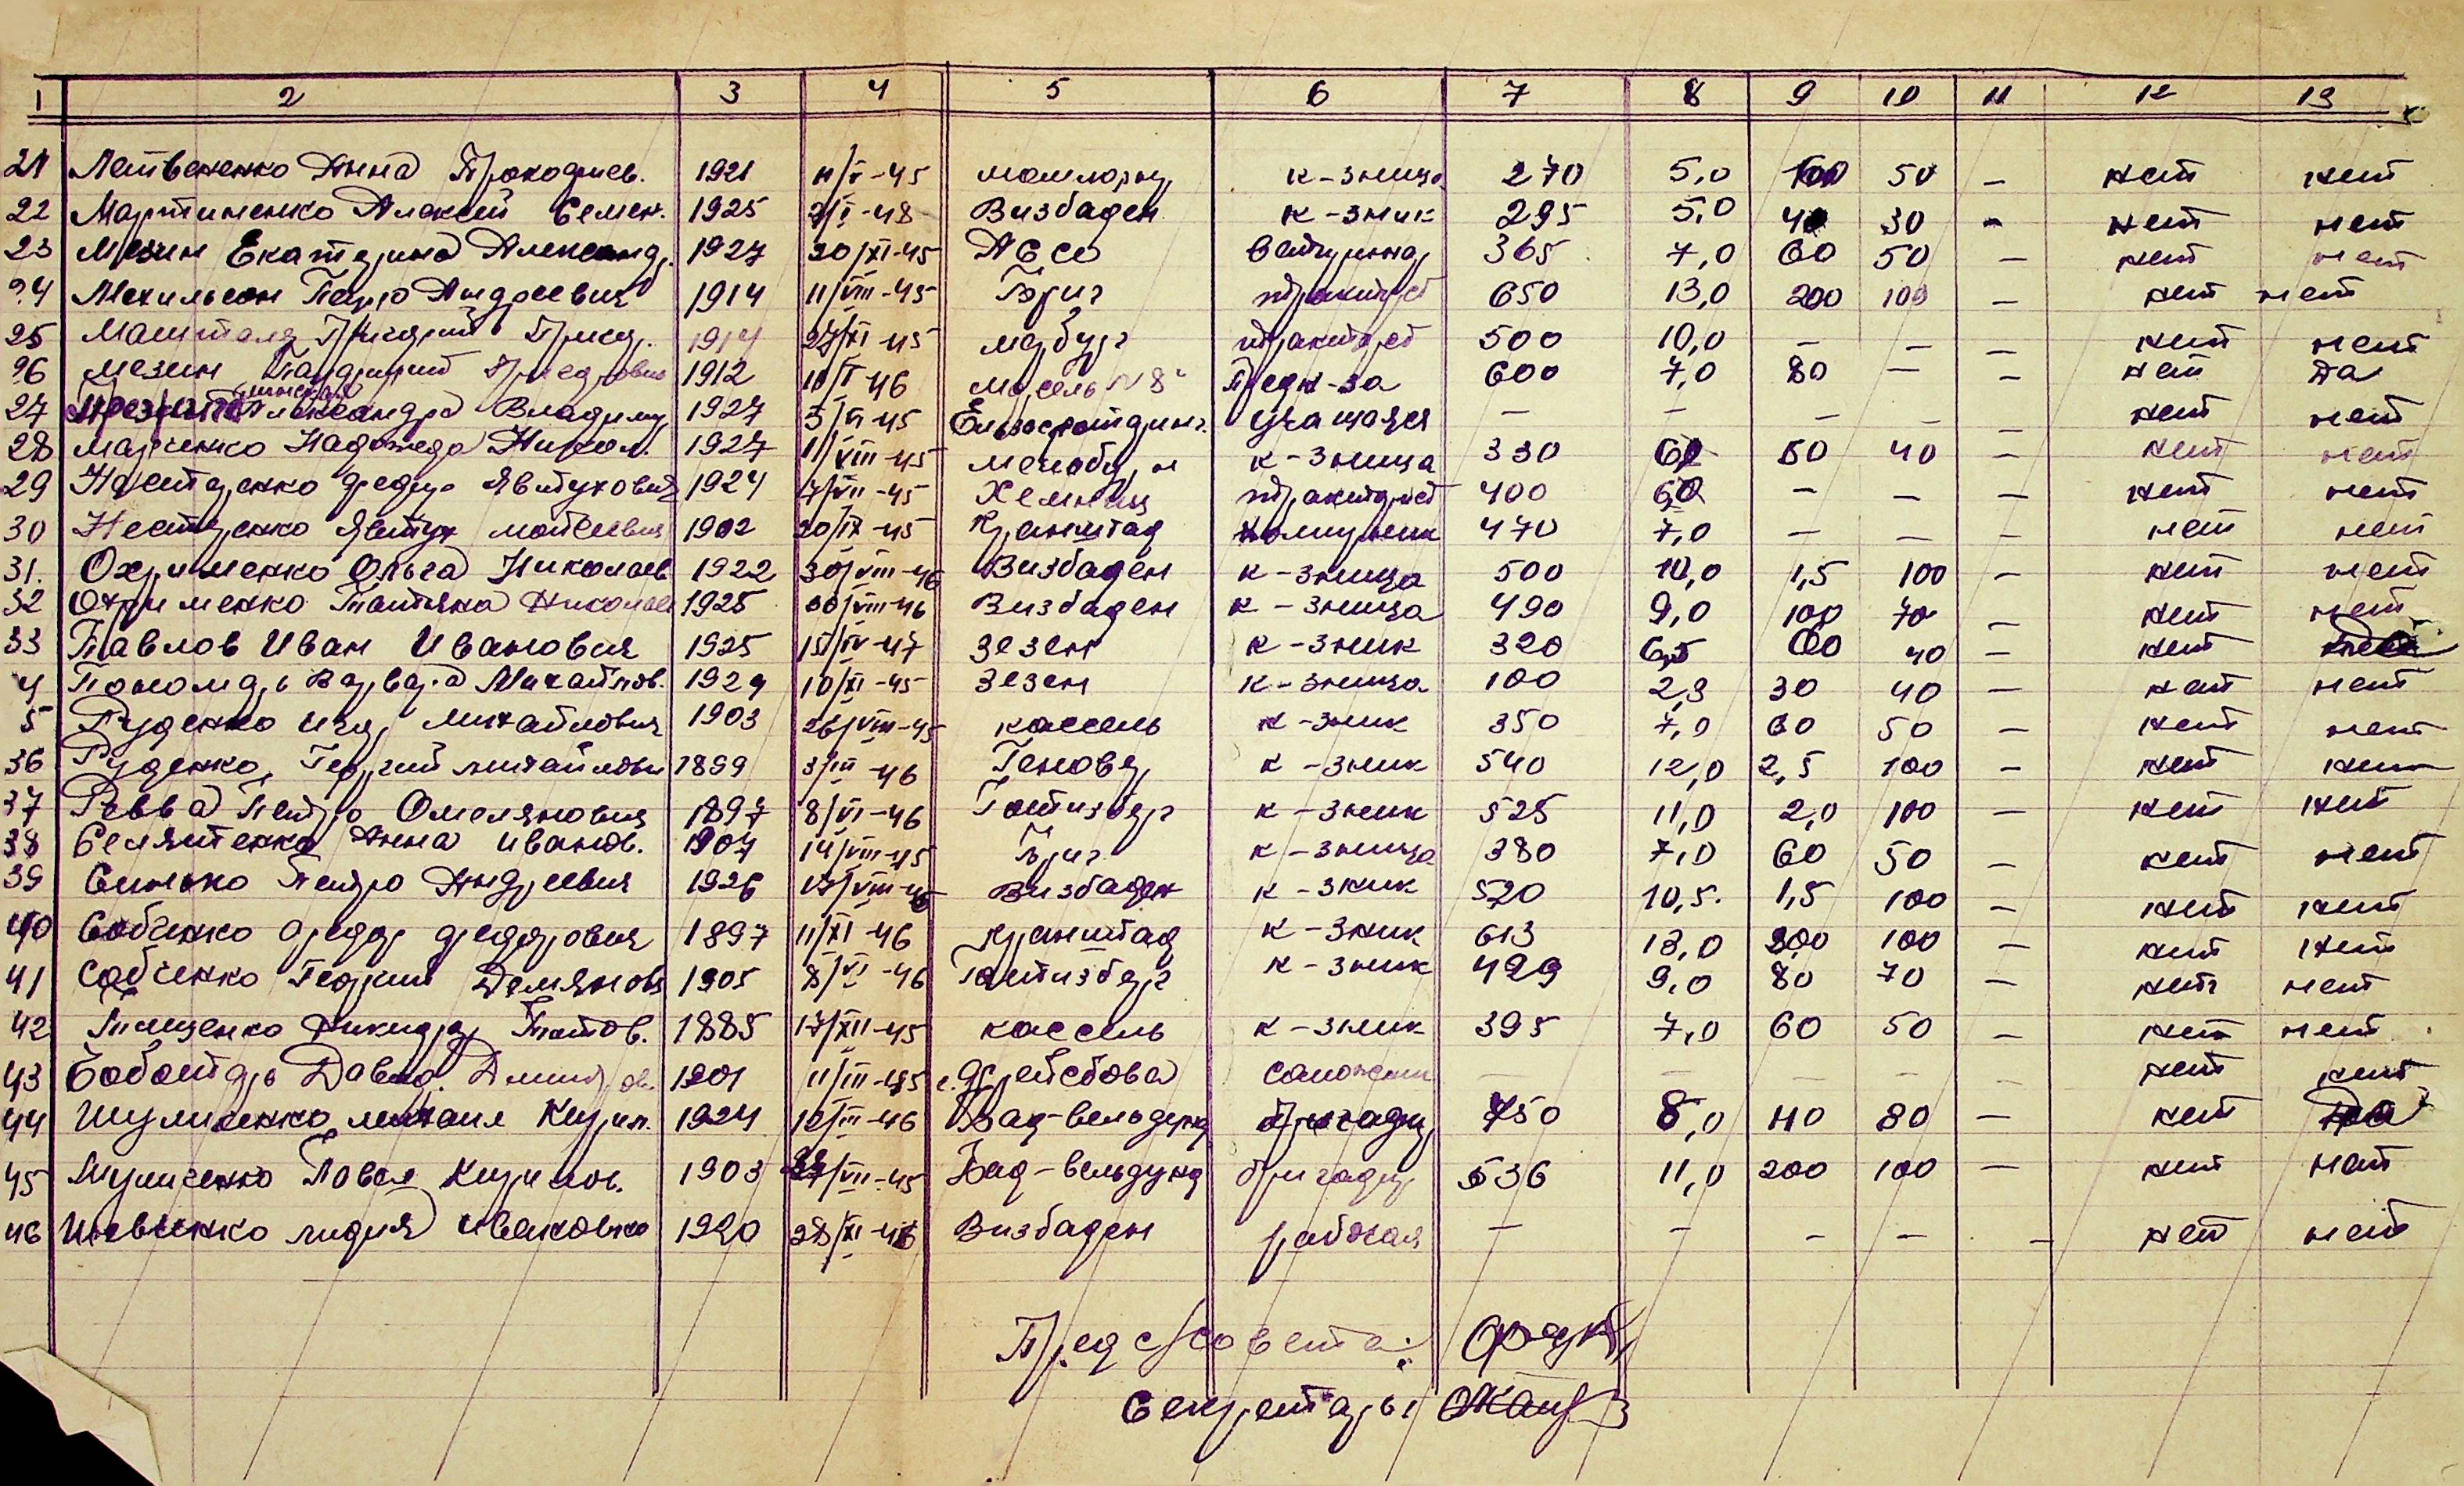 1 2 3 4 5 6 7 8 9 10 11 12 13
21 Литвененко Анна Прокофиев. 1921 11/V-45 к-зница 270 5,0 50 — нет нет
22 Мартиненко Алексей Семен. 1925 2/I-48 Визбаден к-зник 295 5,0 40 30 - нет нет
23 Мезин Екатерина Александ. 1927 20/XI-45 365 7,0 60 50 — нет нет
24 Петро Андреевич 1914 11/VIII-45 Бриг тракторист 650 13,0 200 100 — нет нет
25 Григорий Григор. 1914 27/XI-45 Марбург тракторист 500 10,0 — — — нет нет
26 Мезин 1912 10/I-46 Пред к-за 600 7,0 80 — — нет Да
27 Александра Владимир 1927 3/VI-45 учащаяся — — — — — нет нет
28 Марченко Надежда Никол. 1927 11/VIII-45 к-зница 330 60 50 40 — нет нет
29 Нестеренко Федир Явтухович 1924 7/VII-45 Хемниц тракторист 400 — — — нет нет
30 Нестеренко Явтух Мойсеевич 1902 20/IX-45 Кранштад 470 7,0 — — — нет нет
31. Охрименко Ольга Николаев 1922 30/VIII-46 Визбаден к-зница 500 10,0 1,5 100 — нет нет
32 Охрименко Татьяна Николаев 1925 30/VIII-46 Визбаден к-зница 490 9,0 100 70 — нет нет
33 Павлов Иван Иванович 1925 15/IV-47 Зезен к-зник 320 6,5 60 40 — нет
4 Пономарь Варвара Михайлов. 1929 10/XI-45 Зезен к-зница 100 2,3 30 40 — нет нет
5 Руденко Михайлович 1903 26/VIII-45 Кассель к-зник 350 7,0 60 50 — нет нет
36 Руденко Георгий Михайлович 1899 3/III-46 Гановер к-зник 540 12,0 2,5 100 — нет нет
37 Ревва Петро Омелянович 1897 8/VI-46 Готизберг к-зник 525 11,0 2,0 100 — нет нет
38 Селятенко Анна Иванов. 1907 14/VIII-45 Бриг к-зница 380 7,0 60 50 — нет нет
39 Синько Петро Андреевич 1926 Визбаден к-зник 520 10,5. 1,5 100 — нет нет
40 Собченко Федор Федорович 1897 11/XI-46 Кранштад к-зник 613 13,0 200 100 — нет нет
41 Собченко Георгий Демянов 1905 8/VI-46 Готизберг к-зник 499 9,0 80 70 — нет нет
42 Тищенко Никифор 1885 17/XII-45 Кассель к-зник 395 7,0 60 50 — нет нет
43 Давид. Дмитров. 1901 11/III-45 сапожник — — — — — нет нет
44 Шуличенко Михаил Кирил. 1924 12/III-46 Бад-Вельдунд бригадир 750 8,0 40 80 — нет Да
45 Шуличенко Павел Кирилов. 1903 /VII-45 Бад-Вельдунд бригадир 536 11,0 200 100 — нет нет
46 Шевченко Лидия Ивановна 1920 28/XI-46 Визбаден рабочая — — — — — нет нет
Пред с/совета:
Секретарь: